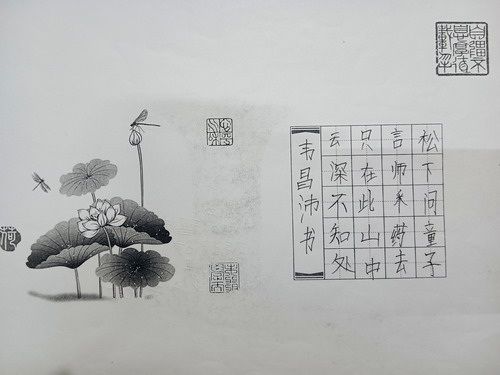 松下问童子
言师采药去
只在此山中
云深不知处
韦昌沛书
荷